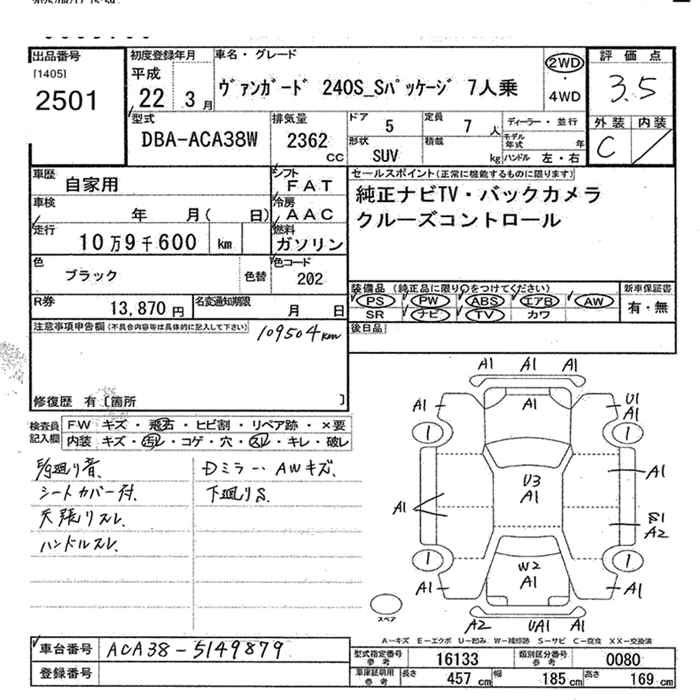 出品番号
[1405]
2501
初度登録年月
平成
22年 3月
車名・グレード
ヴァンガード 240S_Sパッケージ 7人乗
2WD
・
4WD
評価点
3.5
外装 内装
C /
型式
DBA-ACA38W
排気量
2362
cc
ドア 5
定員 7 人
形状 SUV
積載 kg
ディーラー・並行
モデル年式 年
ハンドル 左・右
車歴 自家用
シフト FAT
車検 年 月( 日)
冷房 AAC
走行 10万9千600 km
燃料 ガソリン
色 ブラック 色替
色コード 202
R券 13,870円
名変通知期限 月 日
セールスポイント(正常に機能するものに限ります)
純正ナビTV・バックカメラ
クルーズコントロール
装備品 (純正品に限り○をつけてください)
PS PW ABS エアB AW
SR ナビ TV カワ
新車保証書
有・無
後日品
注意事項申告欄(不具合内容等は具体的に記入して下さい)
109504km
修復歴 有〔箇所 〕
検査員記入欄
FW キズ・飛石・ヒビ割・リペア跡・×要
内装 キズ・汚レ・コゲ・穴・スレ・キレ・破レ
シートカバー付
天張リスレ
ハンドルスレ
Dミラー、AWキズ
下廻りS
A1 A1 A1
A1 A1 U1
A1
1 1
U3
A1
A1
A1
S1
A2
1 1
W2
A1
A1 A1
A2 UA1 A1
スペア
A-キズ E-エクボ U-凹み W-補修跡 S-サビ C-腐食 XX-交換済
車台番号 ACA38-5149879
登録番号
型式指定番号 参考 16133
類別区分番号 参考 0080
車庫証明用 参考 長さ 457cm 幅 185cm 高さ 169cm